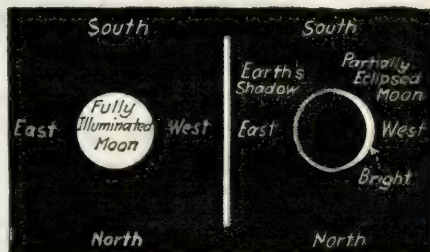 South
Fully
Illuminated
Moon
East
West
North
South
Earth's
Shadow
Partially
Eclipsed
Moon
East
West
Bright
North